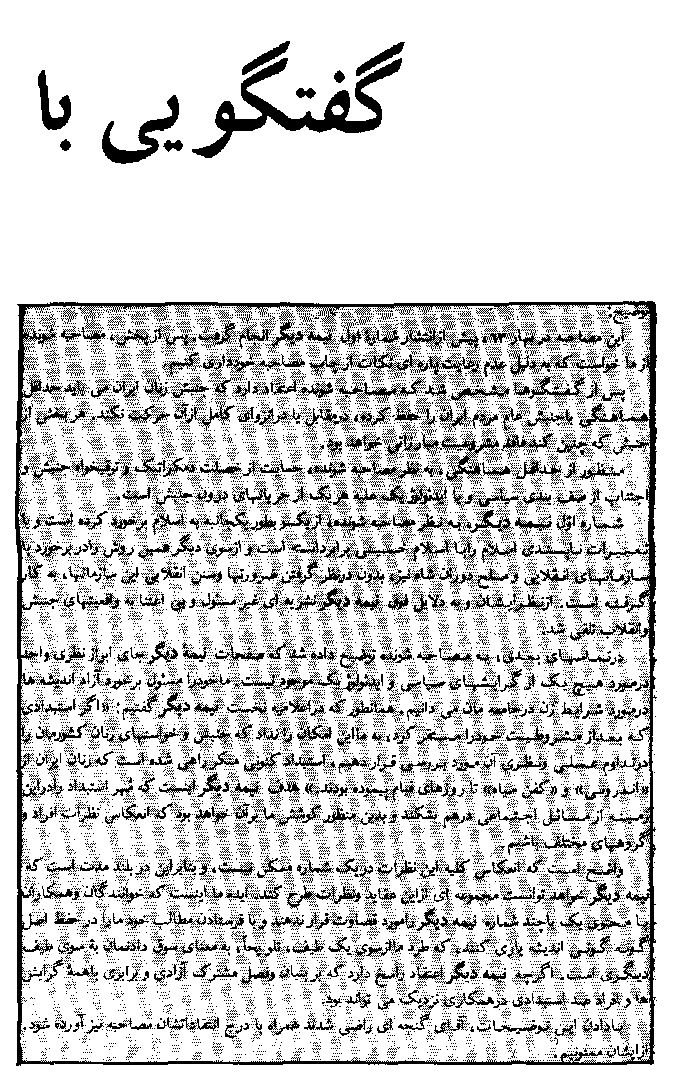 گفتگویی با
توضیح:
این مصاحبه در بهار ۶۳، پیش از انتشار شمارهٔ اول نیمه دیگر انجام گرفت. پس از پخش، مصاحبه شونده
از ما خواست که به دلیل عدم رعایت پاره ای نکات از چاپ مصاحبه خودداری کنیم.
پس از گفتگوها مشخص شد که مصاحبه شونده اعتقاد دارد که جنبش زنان ایران می باید حداقل
هماهنگی باجنبش عام مردم ایران را حفظ کرده، درمقابل یا درانزوای کامل ازآن حرکت نکند. هربخش از
جنبش که چنین کند فاقد مشروعیت مبارزاتی خواهد بود.
منظور از حداقل هماهنگی، به نظر مصاحبه شونده، حمایت از خصلت دمکراتیک و ترقیخواه جنبش و
اجتناب از صف بندی سیاسی و یا ایدئولوژیک علیه هریک از جریانهای درون جنبش است.
شماره اول نیمه دیگر، به نظر مصاحبه شونده، ازیکسو بطور یکجانبه به اسلام برخورد کرده است و با
اسلام را با اسلام خمینی برابر دانسته است و ازسوی دیگر همین روش را در برخورد با
سازمانهای انقلابی و مسلح دوران شاه نیز، بدون درنظر گرفتن ضرورتها وسنن انقلابی این سازمانها، به کار
گرفته است. ازنظر ایشان و به دلایل فوق نیمه دیگر نشریه ای غیر مسئول و بی اعتنا به واقعیتهای جنبش
وانقلاب تلقی شد.
درتماسهای بعدی، به مصاحبه شونده توضیح داده شد که صفحات نیمه دیگر جای ابراز نظری واحد
درمورد هیچ یک از گرایشهای سیاسی و ایدئولوژیک موجود نیست. ما خود را مسئول برخورد آزاد اندیشه ها
درمورد شرایط زن درجامعه مان می دانیم. همانطور که دراعلامیه نخست نیمه دیگر گفتیم: «اگر استبدادی
که بعد از مشروطیت خود را مستقر کرد، به ما این امکان را نداد که جنبش و خواستهای زنان کشورمان را
درتداوم عملی ونظری آن مورد بررسی قرار دهیم، استبداد کنونی منکر راهی شده است که زنان ایران از
«اندرونی» و «کفن سیاه» تا روزهای قیام پیموده بودند.» هدف نیمه دیگر اینست که مُهر استبداد را دراین
زمینه از مسائل اجتماعی درهم بشکند و بدین منظور کوشش ما برآن خواهد بود که انعکاس نظرات افراد و
گروههای مختلف باشیم.
واضح است که انعکاس کلیه این نظرات در یک شماره ممکن نیست، و بنابراین در بلند مدت است که
نیمه دیگر خواهد توانست مجموعه ای از این عقاید ونظرات طرح کند. ایده ما اینست که خوانندگان وهمکاران
ما محتوی یک یا چند شماره نیمه دیگر را مورد قضاوت قرار ندهند و با فرستادن مطالب خود ما را در حفظ اصل
گونه گونی اندیشه یاری کنند، که طرد ما ازسوی یک طیف، تلویحاً، به معنای سوق دادنمان به سوی طیف
دیگری است. اگرچه نیمه دیگر اعتقاد راسخ دارد که بر بنیان وفصل مشترک آزادی و برابری با همهٔ گرایش
ها و افراد ضد استبدادی درهمکاری نزدیک می تواند بود.
با دادن این توضیحات، آقـای گنجه ای راضی شدند همراه با درج انتقاداتشان مصاحبه نیز آورده شود.
ازایشان ممنونیم.